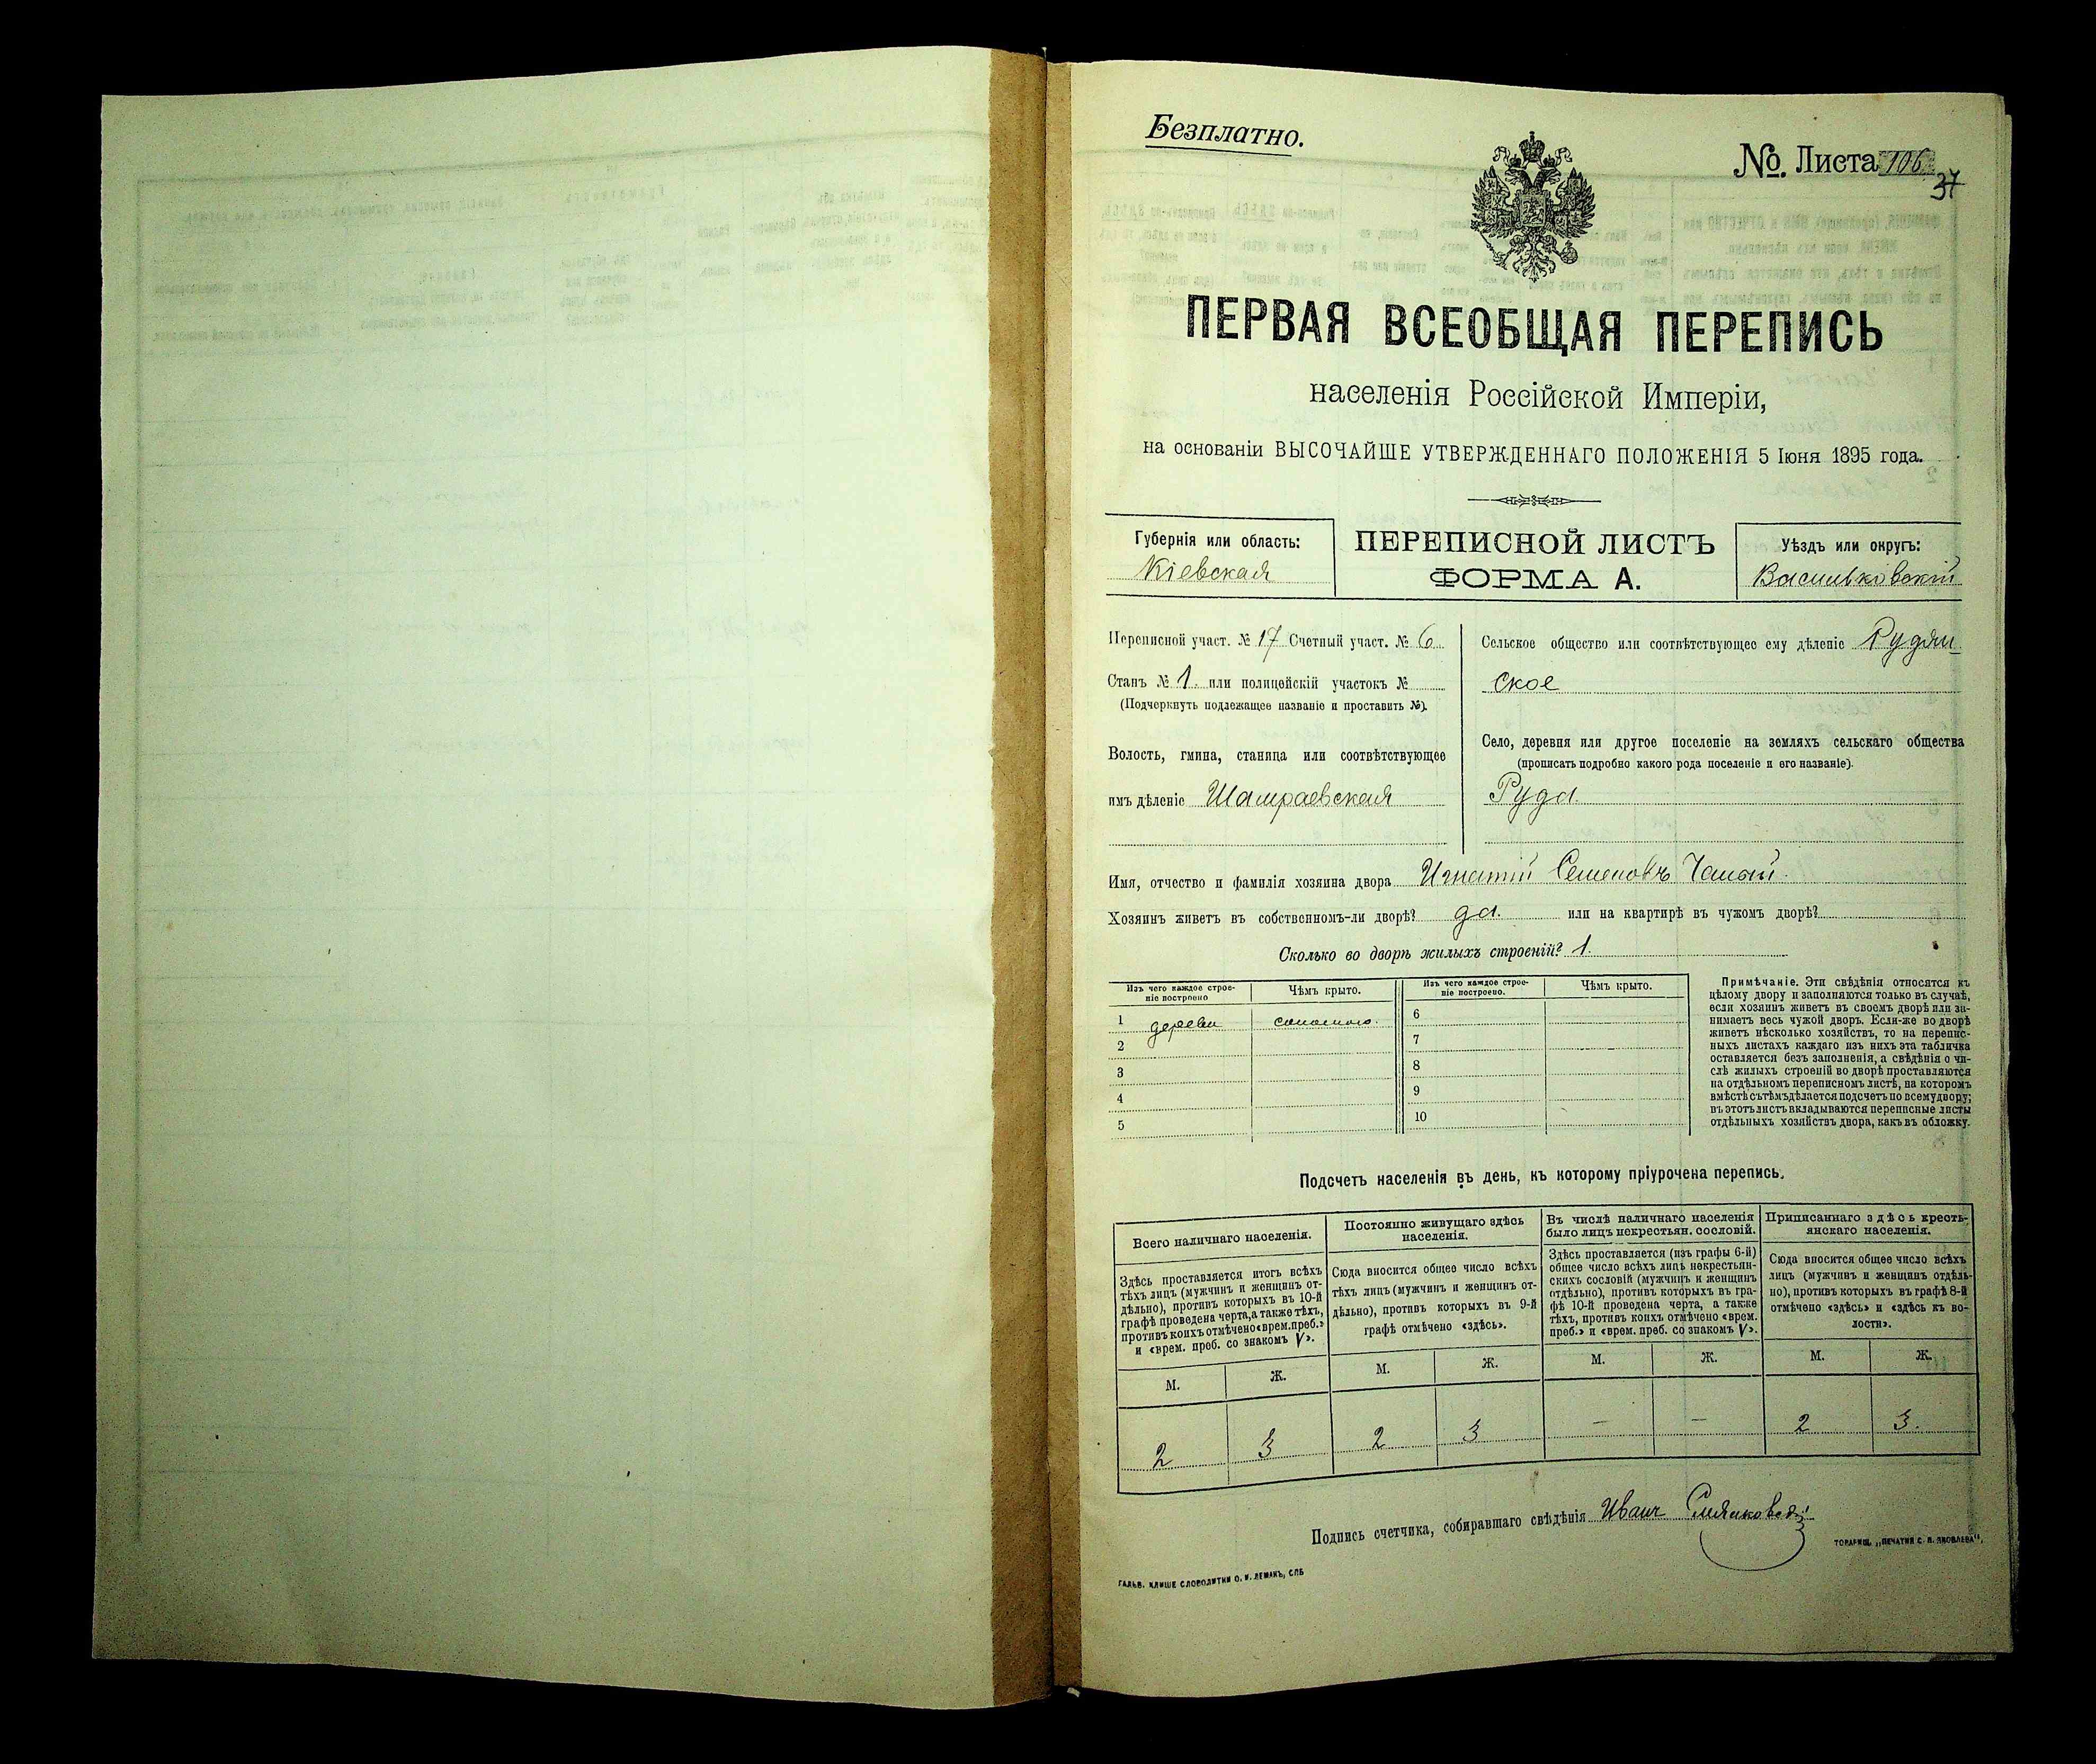 Безплатно.
№ Листа 106
37
ПЕРВАЯ ВСЕОБЩАЯ ПЕРЕПИСЬ
населенія Россійской Имперіи,
на основаніи ВЫСОЧАЙШЕ УТВЕРЖДЕННАГО ПОЛОЖЕНІЯ 5 Іюня 1895 года.
Губернія или область:
Кіевская
ПЕРЕПИСНОЙ ЛИСТЪ
ФОРМА А.
Уѣздъ или округъ:
Васильковскій
Переписной участ. № 17 Счетный участ. № 6
Станъ № 1. или полицейскій участокъ №
(Подчеркнуть подлежащее названіе и проставить №).
Волость, гмина, станица или соотвѣтствующее
имъ дѣленіе Шамраевская
Сельское общество или соотвѣтствующее ему дѣленіе Рудян
ское
Село, деревня или другое поселеніе на земляхъ сельскаго общества
(прописать подробно какого рода поселеніе и его названіе).
Руда
Имя, отчество и фамилія хозяина двора Игнатій Семеновъ
Хозяинъ живетъ въ собственномъ-ли дворѣ? да. или на квартирѣ въ чужомъ дворѣ?
Сколько во дворѣ жилыхъ строеній? 1.
Изъ чего каждое строе-
ніе построено
Чѣмъ крыто.
Изъ чего каждое строе-
ніе построено.
Чѣмъ крыто.
1 дерева соломою.
2
3
4
5
6
7
8
9
10
Примѣчаніе. Эти свѣдѣнія относятся къ
цѣлому двору и заполняются только въ случаѣ,
если хозяинъ живетъ въ своемъ дворѣ или за-
нимаетъ весь чужой дворъ. Если-же во дворѣ
живетъ нѣсколько хозяйствъ, то на перепис-
ныхъ листахъ каждаго изъ нихъ эта табличка
оставляется безъ заполненія, а свѣдѣнія о чи-
слѣ жилыхъ строеній во дворѣ проставляются
на отдѣльномъ переписномъ листѣ, на которомъ
вмѣстѣ съ тѣмъ дѣлается подсчетъ по всему двору;
въ этотъ листъ вкладываются переписные листы
отдѣльныхъ хозяйствъ двора, какъ въ обложку.
Подсчетъ населенія въ день, къ которому пріурочена перепись.
Всего наличнаго населенія.
Здѣсь проставляется итогъ всѣхъ
тѣхъ лицъ (мужчинъ и женщинъ от-
дѣльно), противъ которыхъ въ 10-й
графѣ проведена черта, а также тѣхъ,
противъ коихъ отмѣчено «врем. преб.»
и «врем. преб. со знакомъ V».
Постоянно живущаго здѣсь
населенія.
Сюда вносится общее число всѣхъ
тѣхъ лицъ (мужчинъ и женщинъ от-
дѣльно), противъ которыхъ въ 9-й
графѣ отмѣчено «здѣсь».
Въ числѣ наличнаго населенія
было лицъ некрестьян. сословій.
Здѣсь проставляется (изъ графы 6-й)
общее число всѣхъ лицъ некрестьян-
скихъ сословій (мужчинъ и женщинъ
отдѣльно), противъ которыхъ въ гра-
фѣ 10-й проведена черта, а также
тѣхъ, противъ коихъ отмѣчено «врем.
преб.» и «врем. преб. со знакомъ V».
Приписаннаго здѣсь кресть-
янскаго населенія.
Сюда вносится общее число всѣхъ
лицъ (мужчинъ и женщинъ отдѣль-
но), противъ которыхъ въ графѣ 8-й
отмѣчено «здѣсь» и «здѣсь къ во-
лости».
М. Ж. М. Ж. М. Ж. М. Ж.
2 3 2 3 — — 2 3.
Подпись счетчика, собиравшаго свѣдѣнія Иванъ
ГАЛЬВ. КЛИШЕ СЛОВОЛИТНИ О. И. ЛЕМАНЪ, СПБ
ТОВАРИЩ. „ПЕЧАТНЯ С. П. ЯКОВЛЕВА“.